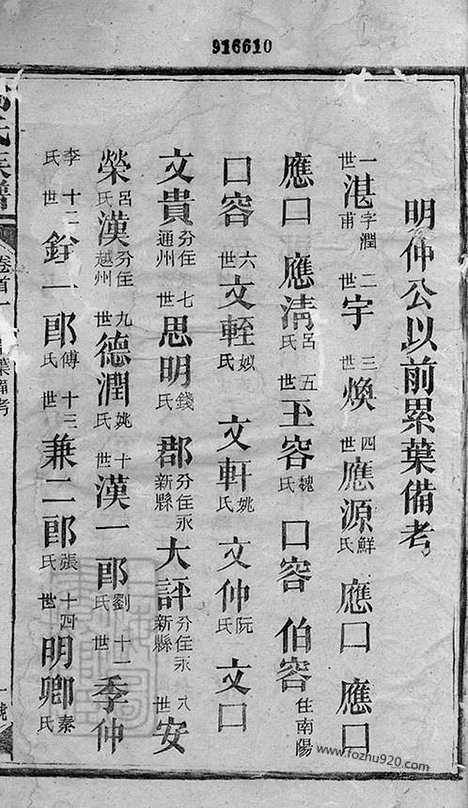 916610
明仲公以前累葉備考
一世湛字潤甫 二世宇 三世煥 四世應源鮮氏 應口 應口
應口 應清呂氏 五世玉容魏氏 口容 伯容住南陽
口容 六世文輊姒氏 文軒姚氏 文仲阮氏 文口
文貴分住通州 七世思明錢氏 郡分住永新縣 大評分住永新縣 八世安
榮呂氏 漢分住越州 九世德潤姚氏 十世漢一郎劉氏 十一世季仲
李氏 十二世 銓一郎傅氏 十三世兼二郎張氏 十四世明卿秦氏
氏族譜
卷首
葉備考
一號
www.fozhu920.com